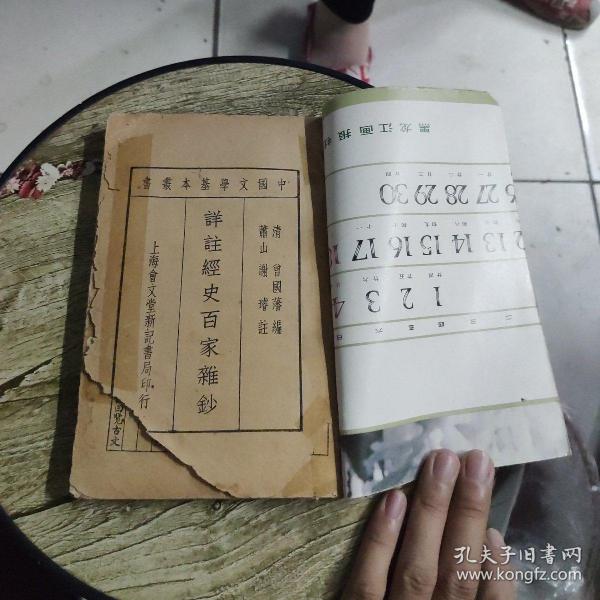 中國文學基本叢書
清 曾國藩編
蕭山 謝璿註
詳註經史百家雜鈔
上海會文堂新記書局印行
古文
黑龙江画报
27 28 29 30
13 14 15 16 17
1 2 3 4
孔夫子旧书网
www.kongfz.com